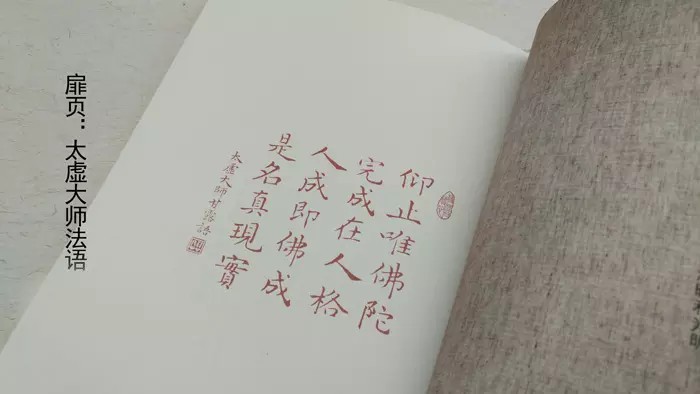 扉页：太虚大师法语
仰止唯佛陀
完成在人格
人成即佛成
是名真現實
太虛大師甘露語